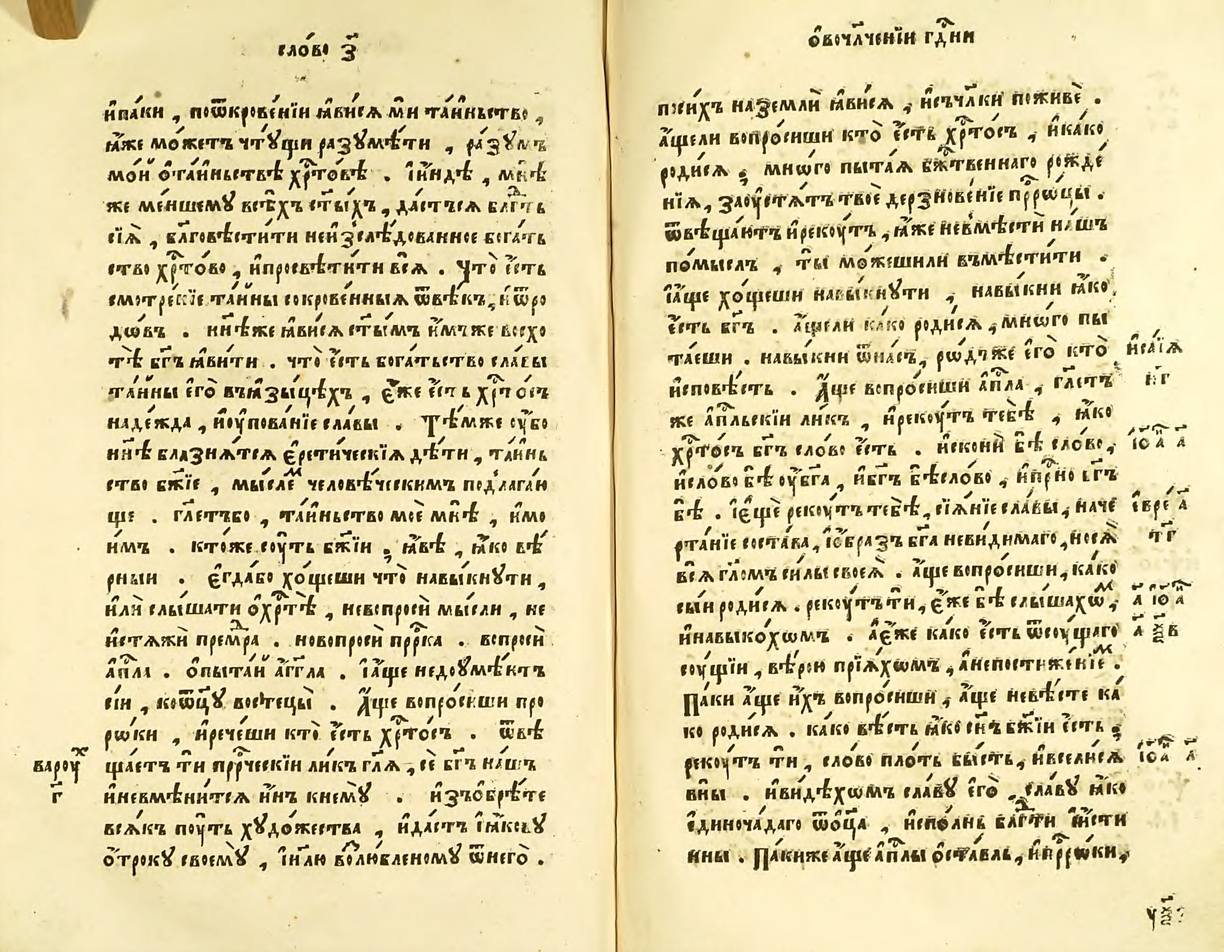 сло́во з҃
и҆па́ки , поѿкрове́нїи ꙗ҆ви́сѧ мѝ та́иньство ,
ꙗ҆́же мо́жетъ чтꙋ́щи разꙋмѣ́ти , ра́зꙋмъ
мо́й ѡ҆та́иньствѣ хрⷭ҇то́вѣ . і҆и҆́ндѣ , мнѣ́
же ме́ншемꙋ всѣ́хъ ст҃ы́хъ , дастъсѧ бл҃гⷣть
сїѧ̀ , бл҃говѣсти́ти неизслѣ́дованное бога́ть
ство хрⷭ҇то́во , и҆просвѣти́ти всѧ̀ . Что̀ є҆́сть
смотре́нїе та́йны сокрове́нныѧ ѿвѣ́къ, и҆ѿро
до́въ . нн҃ѣже ꙗ҆ви́сѧ ст҃ы́мъ и҆́мъже восхо
тѣ̀ бг҃ъ ꙗ҆ви́ти . что̀ є҆́сть бога́тьство сла́вы
та́йны є҆го̀ въꙗ҆зы́цѣхъ , є҆́же є҆́сть хрⷭ҇то́съ
наде́жда , и҆оу҆пова́нїе сла́вы . Тѣ́мже оу҆́бо
нн҃ѣ блазнѧ́тсѧ є҆рети́ческїѧ дѣ́ти , та́инь
ство бж҃їе , мы́слеⷨ человѣ́ческимъ подлага́ю
ще . гл҃етъбо , та́иньство моѐ мнѣ̀ , и҆мо
и҆́мъ . кто́же сꙋ́ть бж҃їи , ꙗ҆́вѣ , ꙗ҆́ко вѣ́
рнын . Є҆гда́бо хо́щеши что̀ навы́кнꙋти ,
и҆лѝ слы́шати ѡ҆хрⷭ҇тѣ̀ , невопросѝ мы́сли , не
и҆стѧжѝ премⷣра . новопросѝ прⷪ҇рка . вспросѝ
а҆пⷭ҇ла . ѡ҆пыта́й а҆́гг҃ла . і҆а҆́ще недоꙋмѣ́ютъ
сїи , коѿц҃ꙋ востецы̀ . А҆́ще вопро́сиши про
рѡ́ки , и҆рече́ши кто̀ є҆́сть хрⷭ҇то́съ . ѿвѣ
ща́етъ тѝ прⷪ҇рческїи ли́къ гл҃ѧ , сѐ бг҃ъ на́шъ
и҆невмѣни́тсѧ и҆́нъ кнемꙋ̀ . и҆зъѡбрѣ́те
всѧ́къ пꙋ́ть хꙋдо́жества , и҆да́стъ і҆ꙗ҆́ковꙋ
ѻ҆́трокꙋ своемꙋ̀ , і҆и҃лю возлю́бленомꙋ ѿнего̀ .
варꙋⷯ
г҃
ѡ҆вочл҃че́нїи гдⷭ҇ни
психъ наземлѝ ꙗ҆ви́сѧ , и҆съчл҃ки поживѐ .
а҆́щели вопро́сиши кто̀ є҆́сть хрⷭ҇то́съ , и҆ка́ко
роди́сѧ , мнѡ́го пыта́ѧ бж҃твеннаго рожде́
нїѧ, заоу҆стѧ́тъ твоѐ дерзнове́нїе прⷪ҇рѡцы .
ѿвѣща́ютъ и҆рекꙋ́тъ , ꙗ҆́же невмѣстѝ на́шъ
по́мыслъ , ты̀ мо́жешили въмѣсти́ти .
і҆а҆́ще хо́щеши навы́кнꙋти , навы́кни ꙗ҆́ко
є҆́сть бг҃ъ . а҆́щели ка́ко роди́сѧ , мнѡ́го пы
та́еши . навы́кни ѿна́съ, рѡ́дъже є҆го̀ кто̀
и҆сповѣ́сть . А҆́ще вопро́сиши а҆пⷭ҇ла , гл҃етъ
же а҆пⷭ҇льскїи ли́къ , и҆рекꙋ́тъ тебѣ̀ , ꙗ҆́ко
хрⷭ҇то́съ бг҃ъ сло́во є҆́сть . и҆сконѝ бѣ̀ сло́во,
и҆сло́во бѣ̀ оу҆бг҃а , и҆бг҃ъ бѣ̀сло́во , и҆прⷭ҇но бг҃ъ
бѣ̀ . і҆є҆щѐ рекꙋ́тъ тебѣ̀, сїѧ́нїе сла́вы, наче
рта́нїе соста́ва, і҆ѡ҆́бразъ бг҃а неви́димаго , носѧ̀
всѧ̀ гл҃омъ си́лы своеѧ̀ . а҆́ще вопро́сиши , ка́ко
сы́и роди́сѧ . рекꙋ́тъ тѝ , є҆́же бѣ̀ слы́шахѡⷨ ,
и҆навыко́хѡмъ . а҆є҆́же ка́ко є҆́сть ѿсꙋ́щаго
сꙋ́щїи , вѣ́рою прїѧ́хѡмъ , а҆непостиже́нїеⷨ .
Па́ки а҆́ще и҆́хъ вопро́сиши , а҆́ще невѣ́сте ка́
ко роди́сѧ . ка́ко вѣ́сть ꙗ҆́ко сн҃ъ бж҃їи є҆́сть ,
рекꙋ́тъ ти , сло́во пло́ть бы́сть , и҆всели́сѧ
вны̀ . и҆ви́дѣхѡмъ сла́вꙋ є҆го̀ , сла́вꙋ ꙗ҆́ко
є҆диноча́даго ѿо҆ц҃а , и҆спо́лнь бл҃гⷣти и҆и҆́сти
нны . Па́киже а҆́ще а҆пⷭ҇лы ѡ҆ста́вль , и҆прⷪ҇рѡки ,
и҆са́їѧ
н҃г
і҆ѡⷩ҇а а҃
є҆вре́ а҃
а҃ і҆ѡⷩ҇а а҃
і҆ѡⷩ҇а а҃